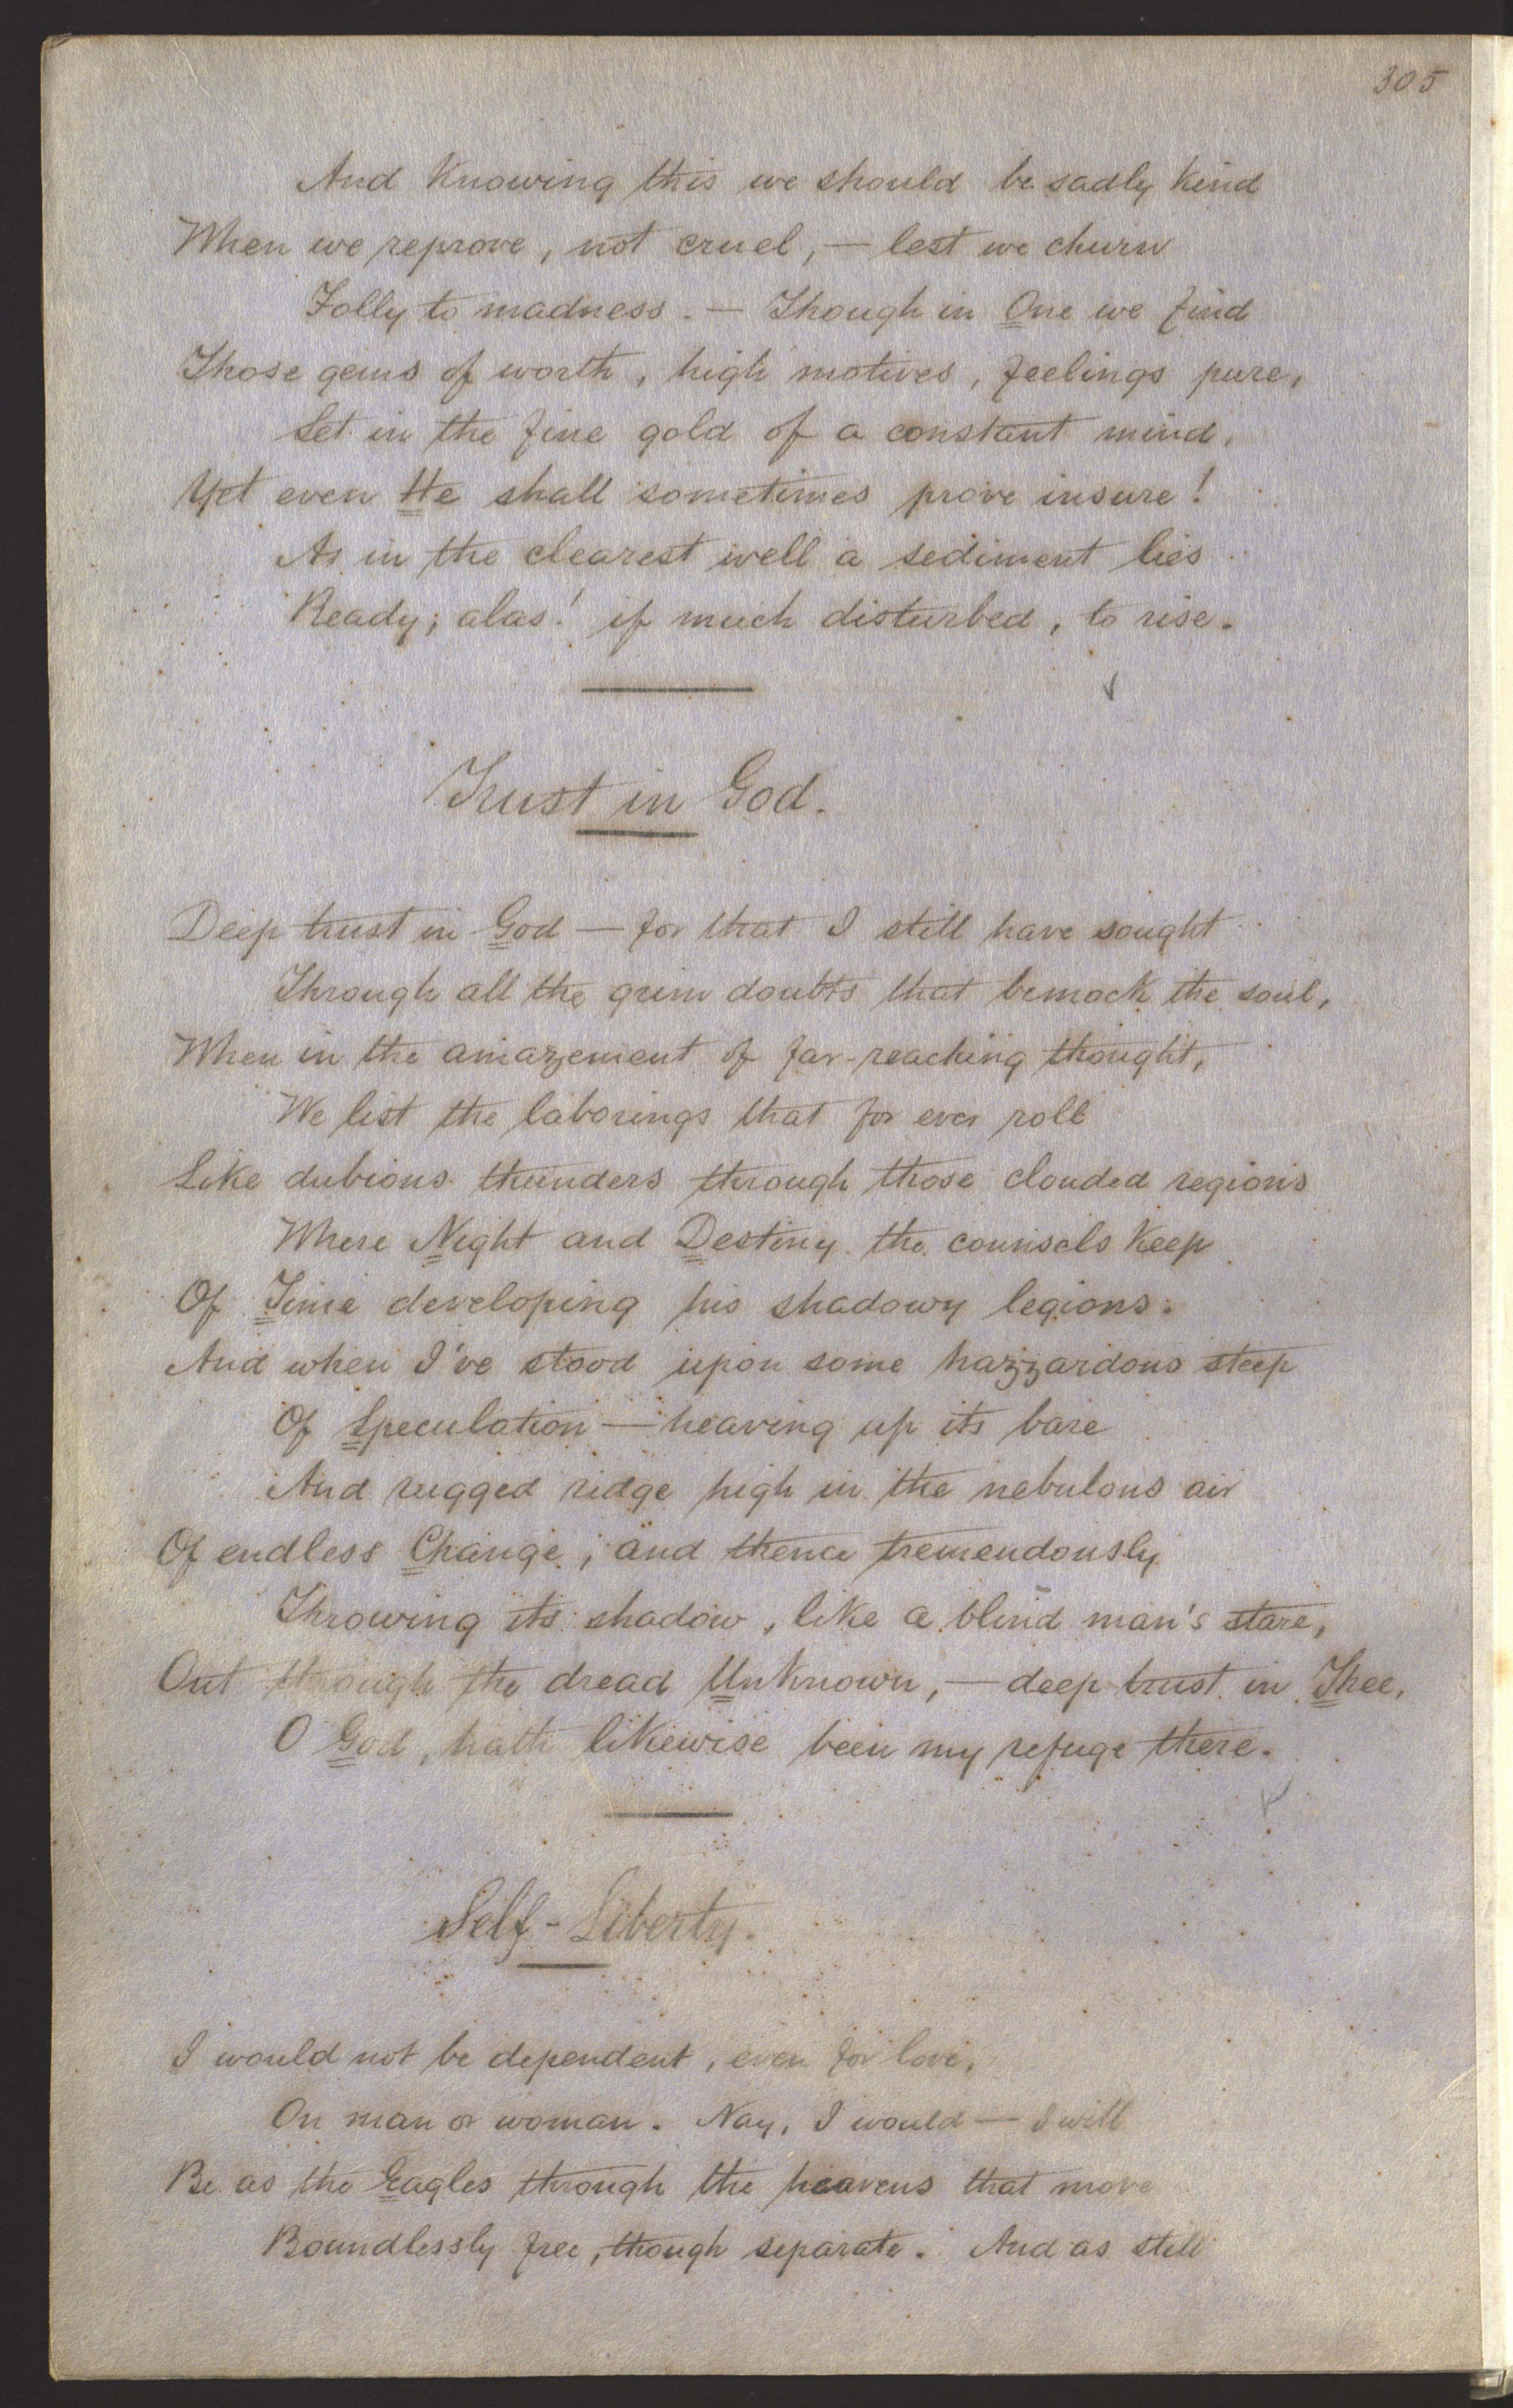 305
And Knowing this we should be sadly kind
When we reprove, not cruel, — lest we churn
Folly to madness. — Though in One we find
Those gems of worth, high motives, feelings pure,
Set in the fine gold of a constant mind,
Yet even He shall sometimes prove insure!
As in the clearest well a sediment lies
Ready; alas! if much disturbed, to rise.
Trust in God.
Deep trust in God — for that I still have sought
Through all the grim doubts that bemock the soul,
When in the amazement of far-reaching thought,
We list the laborings that for ever roll
Like dubious thunders through those clouded regions
Where Night and Destiny the counsels keep
Of Time developing his shadowy legions.
And when I've stood upon some hazzardous steep
Of Speculation — heaving up its bare
And rugged ridge high in the nebulous air
Of endless Change; and thence tremendously
Throwing its shadow, like a blind man's stare,
Out through the dread Unknown, — deep trust in Thee,
O God, hath likewise been my refuge there.
Self-Liberty.
I would not be dependent, even for love,
On man or woman. Nay, I would — I will
Be as the Eagles through the heavens that move
Boundlessly free, though separate. And as still